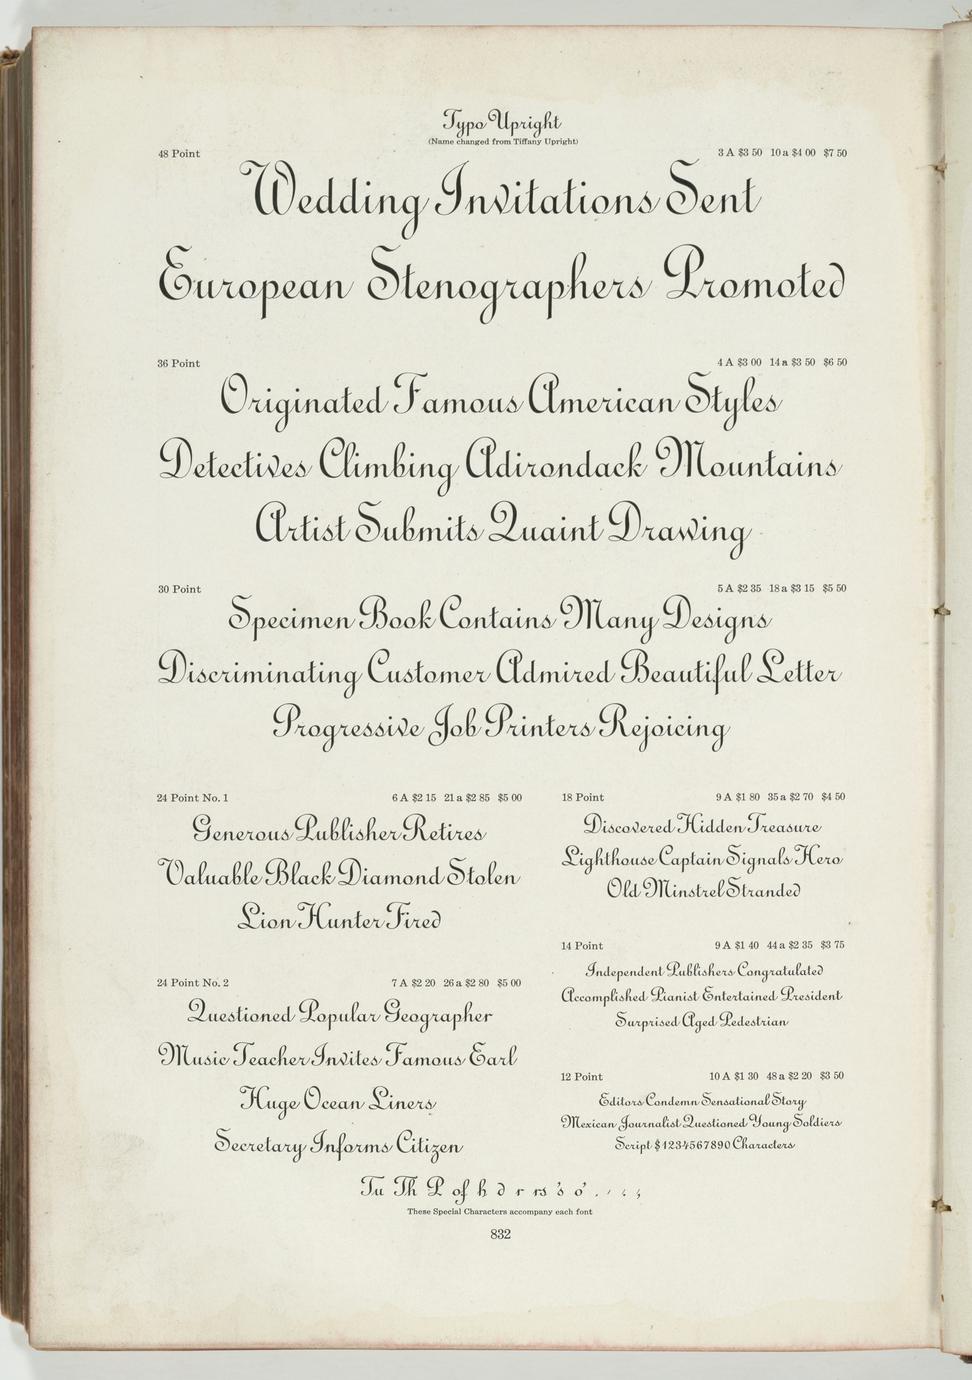 Typo Upright
(Name changed from Tiffany Upright)
48 Point 3 A $3 50 10 a $4 00 $7 50
Wedding Invitations Sent
European Stenographers Promoted
36 Point 4 A $3 00 14 a $3 50 $6 50
Originated Famous American Styles
Detectives Climbing Adirondack Mountains
Artist Submits Quaint Drawing
30 Point 5 A $2 35 18 a $3 15 $5 50
Specimen Book Contains Many Designs
Discriminating Customer Admired Beautiful Letter
Progressive Job Printers Rejoicing
24 Point No. 1 6 A $2 15 21 a $2 85 $5 00
Generous Publisher Retires
Valuable Black Diamond Stolen
Lion Hunter Fired
24 Point No. 2 7 A $2 20 26 a $2 80 $5 00
Questioned Popular Geographer
Music Teacher Invites Famous Earl
Huge Ocean Liners
Secretary Informs Citizen
18 Point 9 A $1 80 35 a $2 70 $4 50
Discovered Hidden Treasure
Lighthouse Captain Signals Hero
Old Minstrel Stranded
14 Point 9 A $1 40 44 a $2 35 $3 75
Independent Publishers Congratulated
Accomplished Pianist Entertained President
Surprised Aged Pedestrian
12 Point 10 A $1 30 48 a $2 20 $3 50
Editors Condemn Sensational Story
Mexican Journalist Questioned Young Soldiers
Script $1234567890 Characters
Tu Th P of h d r rs 's o'
These Special Characters accompany each font
832